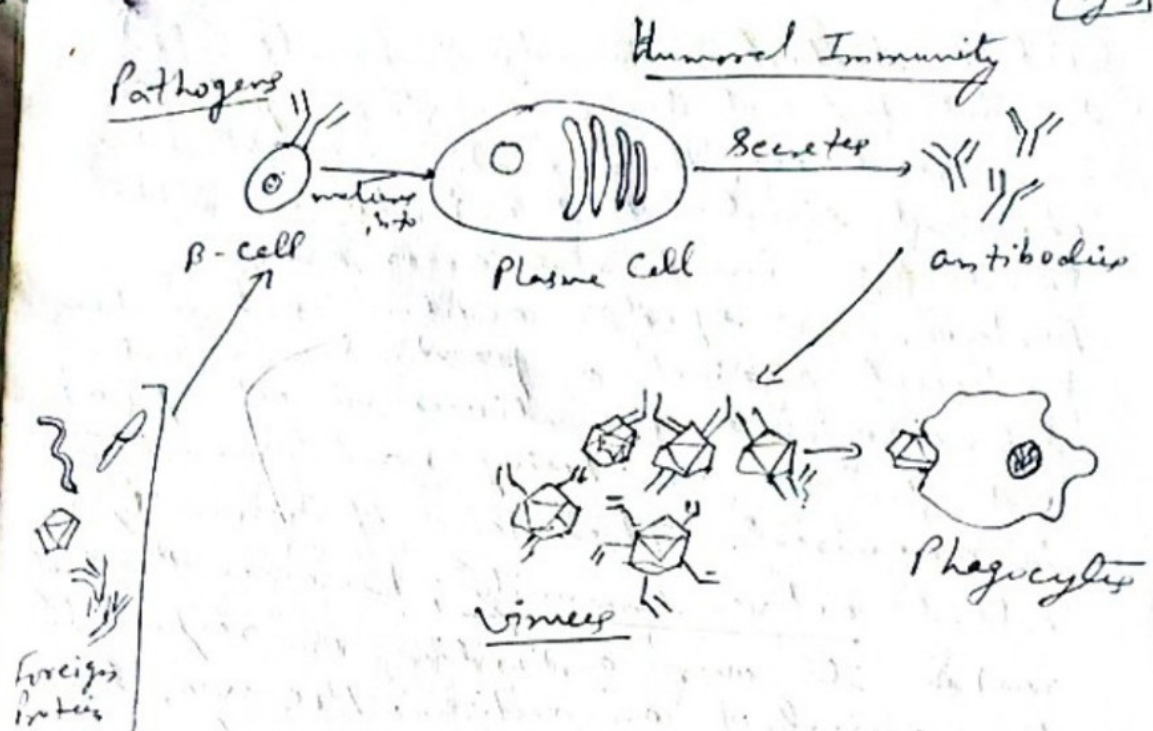 Humoral Immunity
Pathogens
Secretes
matures
into
B-cell
Plasma Cell
antibodies
Phagocytes
Viruses
Foreign
Proteins